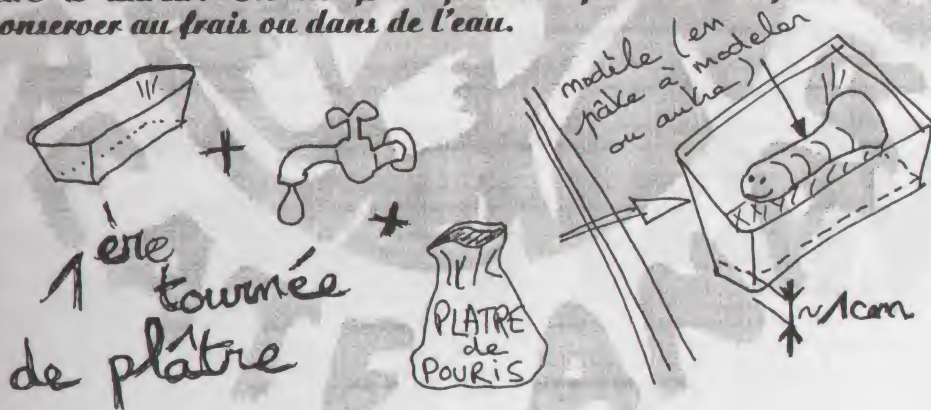 onserver au frais ou dans de l'eau.
modèle (en
pâte à modeler
ou autre)
+
+
1ère tournée
de plâtre
PLATRE
de
POURIS
~1cm